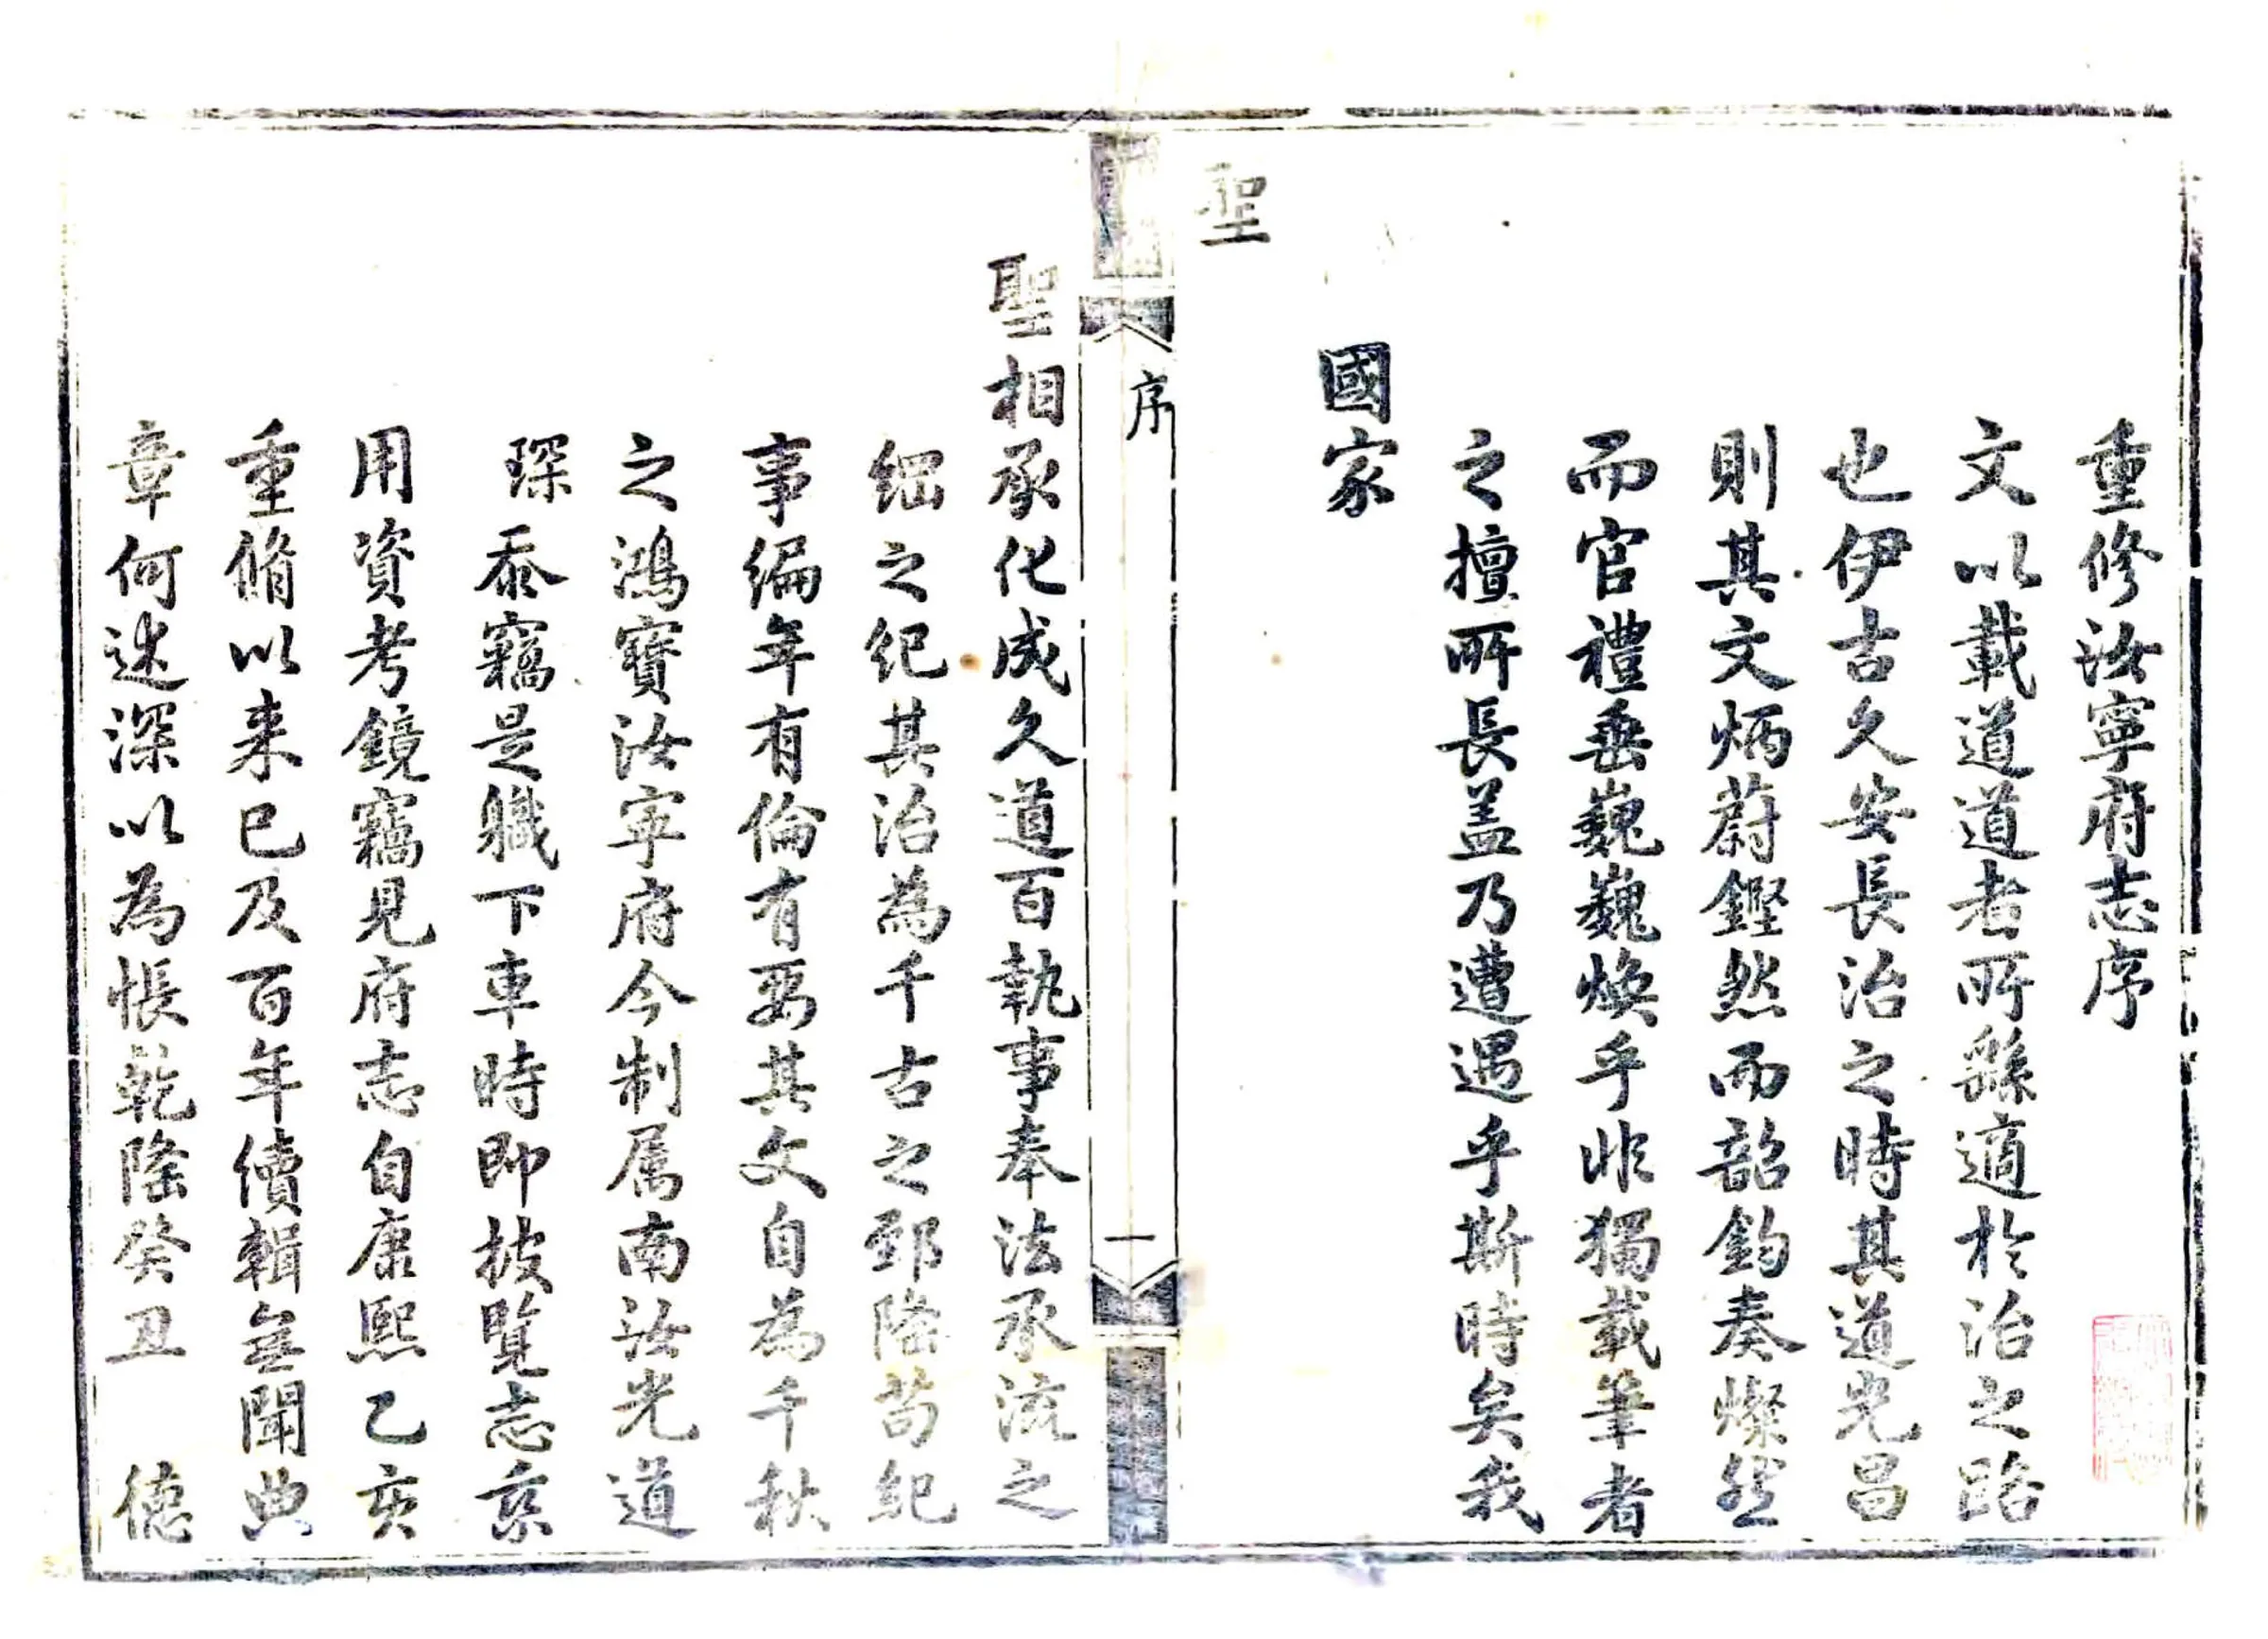 重修汝寧府志序
文以載道道者所繇適於治之路
也伊古久安長治之時其道光昌
則其文炳蔚鏗然而韶鈞奏燦然
而官禮垂巍巍煥乎非獨載筆者
之擅所長盖乃遭遇乎斯時矣我
國家
聖
序
一
聖相承化成久道百執事奉法承流之
細之紀其治為千古之郅隆苟紀
事編年有倫有要其文自為千秋
之鴻寶汝寧府今制属南汝光道
琛忝竊是職下車時即披覽志乘
用資考鏡竊見府志自康熙乙亥
重脩以来已及百年續輯無聞典
章何述深以為悵乾隆癸丑 德